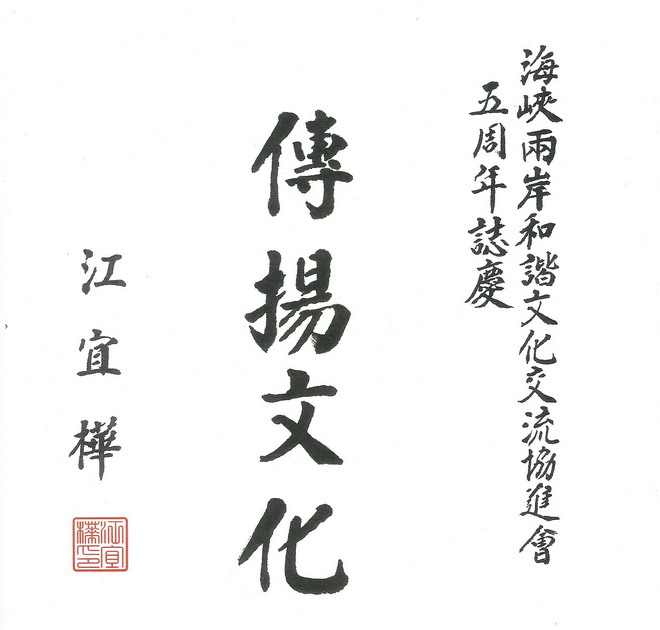 海峽兩岸和諧文化交流協進會
五周年誌慶
傳揚文化
江宜樺
江宜樺印